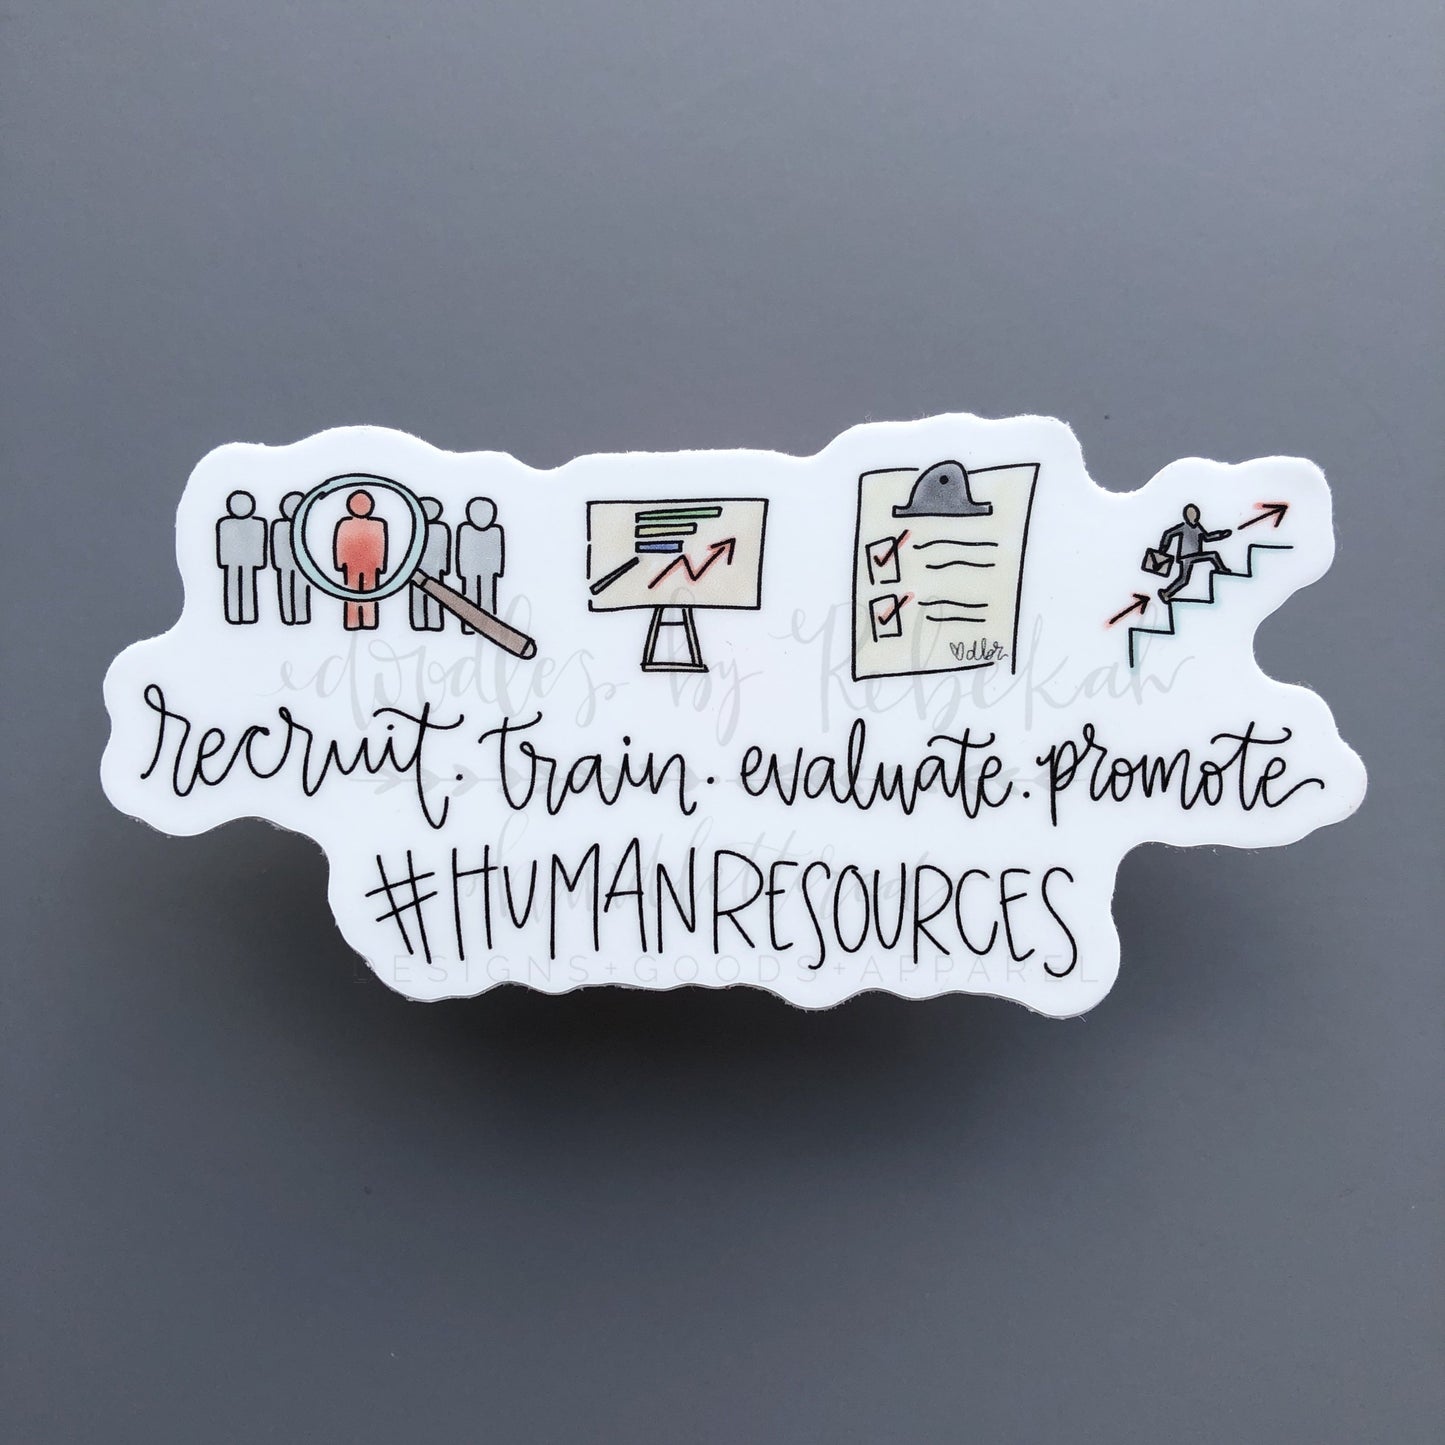 ♡dbr
doodles by Rebekah
recruit. train. evaluate. promote
#HUMANRESOURCES
handlettered
DESIGNS+GOODS+APPAREL